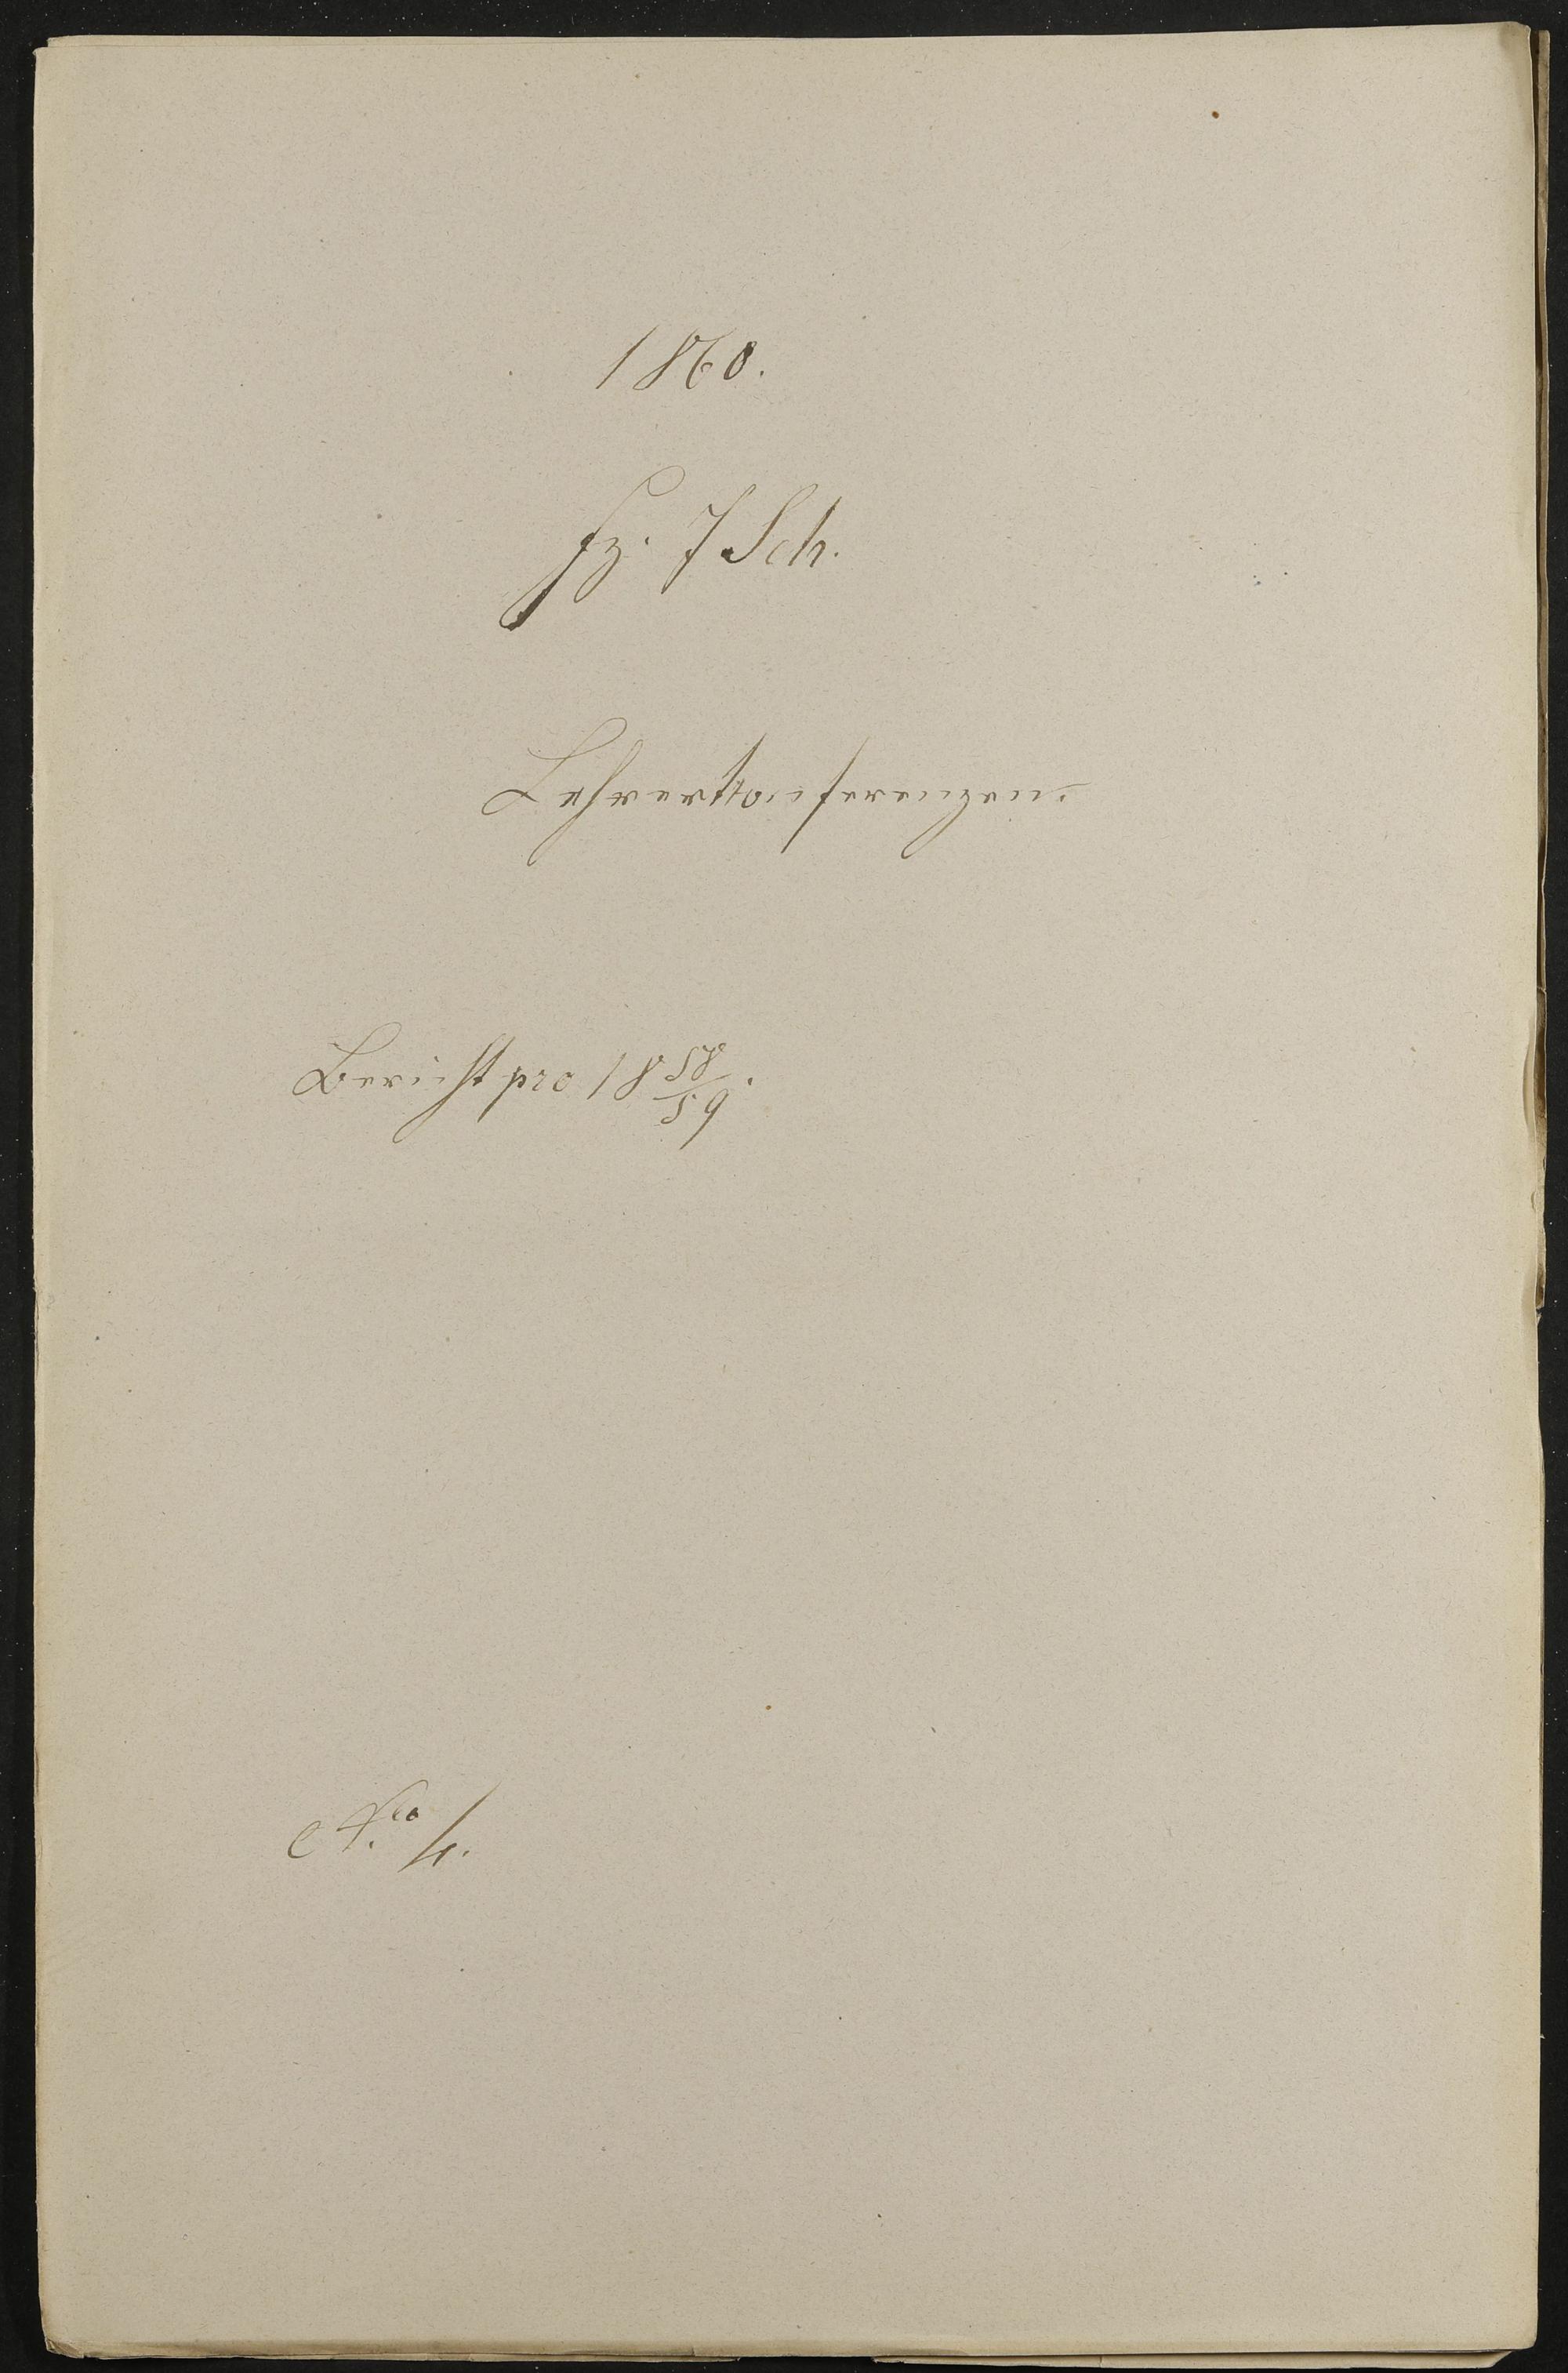 1860.
Fz. 7 Sch.
Lehrerkonferenzen.
Bericht pro 18 58/59.
No. 4.